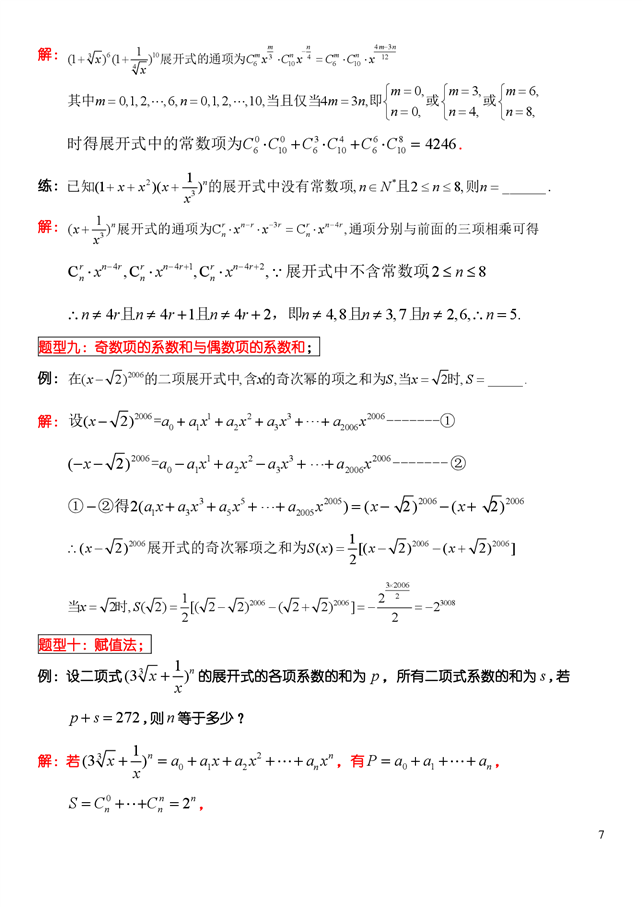 解：(1+∛x)⁶(1+1/∜x)¹⁰展开式的通项为C₆ᵐx^(m/3)·C₁₀ⁿx^(-n/4)=C₆ᵐ·C₁₀ⁿ·x^((4m-3n)/12)
其中m=0,1,2,⋯,6,n=0,1,2,⋯,10,当且仅当4m=3n,即{m=0,n=0,或{m=3,n=4,或{m=6,n=8,
时得展开式中的常数项为C₆⁰·C₁₀⁰+C₆³·C₁₀⁴+C₆⁶·C₁₀⁸=4246.
练：已知(1+x+x²)(x+1/x³)ⁿ的展开式中没有常数项,n∈N*且2≤n≤8,则n=______.
解：(x+1/x³)ⁿ展开式的通项为Cₙʳ·xⁿ⁻ʳ·x⁻³ʳ=Cₙʳ·xⁿ⁻⁴ʳ,通项分别与前面的三项相乘可得
Cₙʳ·xⁿ⁻⁴ʳ,Cₙʳ·xⁿ⁻⁴ʳ⁺¹,Cₙʳ·xⁿ⁻⁴ʳ⁺²,∵展开式中不含常数项,2≤n≤8
∴n≠4r且n≠4r+1且n≠4r+2，即n≠4,8且n≠3,7且n≠2,6,∴n=5.
题型九：奇数项的系数和与偶数项的系数和；
例：在(x-√2)²⁰⁰⁶的二项展开式中,含x的奇次幂的项之和为S,当x=√2时,S=_____.
解：设(x-√2)²⁰⁰⁶=a₀+a₁x¹+a₂x²+a₃x³+⋯+a₂₀₀₆x²⁰⁰⁶-------①
(-x-√2)²⁰⁰⁶=a₀-a₁x¹+a₂x²-a₃x³+⋯+a₂₀₀₆x²⁰⁰⁶-------②
①-②得2(a₁x+a₃x³+a₅x⁵+⋯+a₂₀₀₅x²⁰⁰⁵)=(x-√2)²⁰⁰⁶-(x+√2)²⁰⁰⁶
∴(x-√2)²⁰⁰⁶展开式的奇次幂项之和为S(x)=1/2[(x-√2)²⁰⁰⁶-(x+√2)²⁰⁰⁶]
当x=√2时,S(√2)=1/2[(√2-√2)²⁰⁰⁶-(√2+√2)²⁰⁰⁶]=-2^(3×2006/2)/2=-2³⁰⁰⁸
题型十：赋值法；
例：设二项式(3∛x+1/x)ⁿ的展开式的各项系数的和为p，所有二项式系数的和为s,若
p+s=272,则n等于多少？
解：若(3∛x+1/x)ⁿ=a₀+a₁x+a₂x²+⋯+aₙxⁿ，有P=a₀+a₁+⋯+aₙ，
S=Cₙ⁰+⋯+Cₙⁿ=2ⁿ，
7